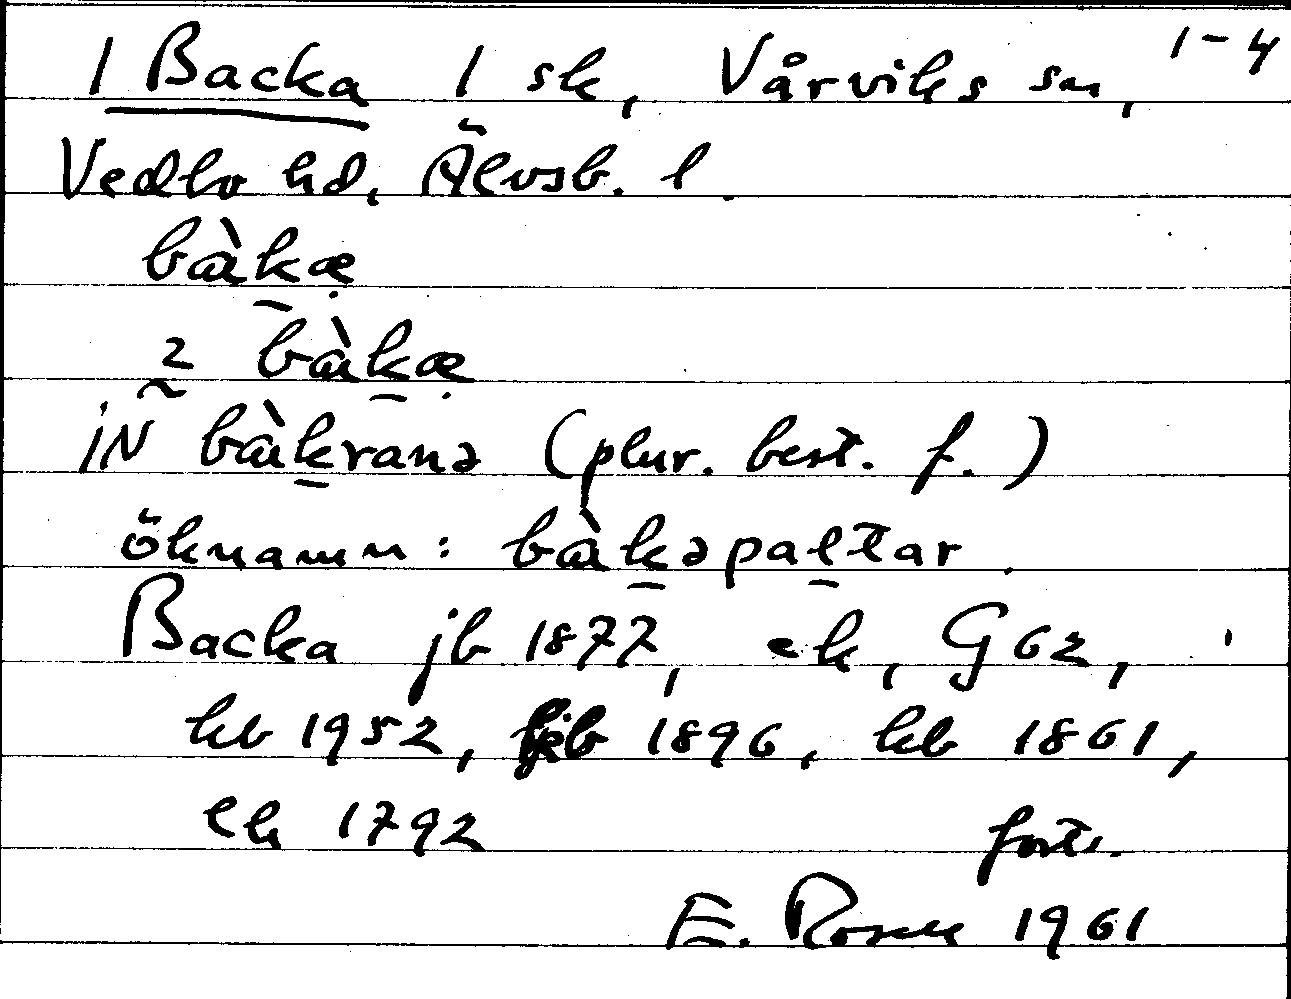 1 Backa 1 sk, Vårviks sn, 1-4
Vedbo hd, Älvsb. l.
bàk̲æ̣
2 bàk̲æ̣
iN bàk̲ranə (plur. best. f.)
öknamn: bàk̲əpal̲tar.
Backa jb 1877, ek, G 62,
kb 1952, jb 1896, kb 1861,
ek 1792 forts.
E. Rosell 1961